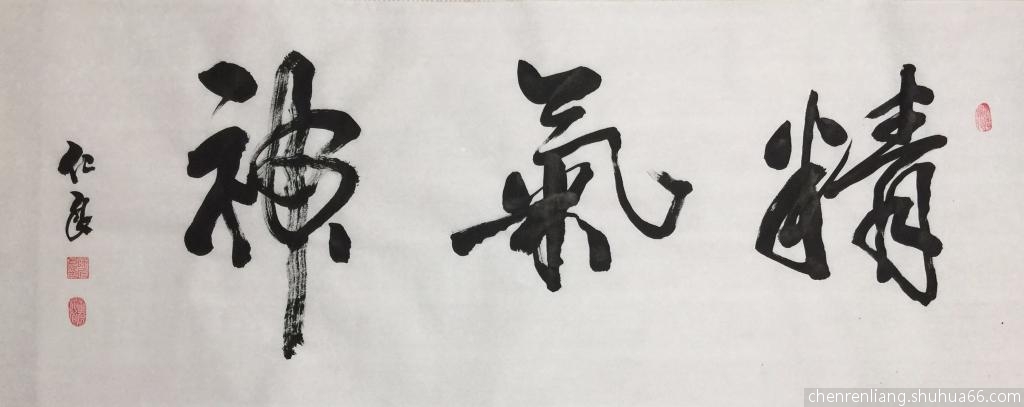 精氣神
仁良
chenrenliang.shuhua66.com